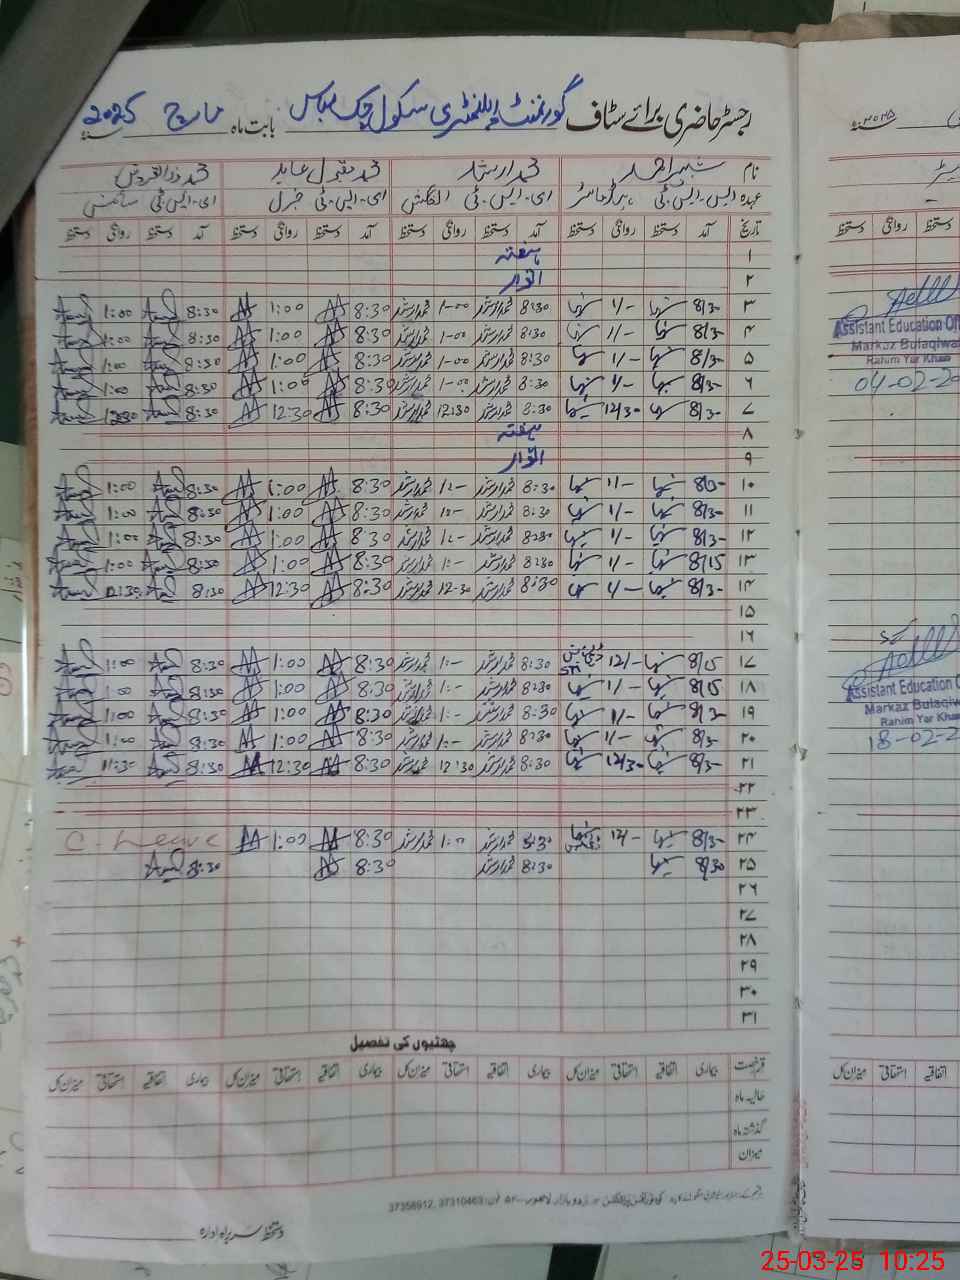 رجسٹر حاضری برائے سٹاف گورنمنٹ ایلیمنٹری سکول چک عباس بابت ماہ مارچ 2025
نام شبیر احمد محمد ارشد محمد مقبول عابد
عہدہ ایس۔ایس۔ٹی ای۔ایس۔ٹی انگلش ای۔ایس۔ٹی جنرل ای۔ایس۔ٹی سائنس
تاریخ آمد دستخط روانگی دستخط آمد دستخط روانگی دستخط آمد دستخط روانگی دستخط آمد دستخط روانگی دستخط
۱ ہفتہ
۲ اتوار
۳ 8/3- 1/- 8:30 محمد ارشد 1-00 محمد ارشد 8:30 1:00 8:30 1:00
۴ 8/3- 1/- 8:30 محمد ارشد 1-00 محمد ارشد 8:30 1:00 8:30 1:00
۵ 8/3- 1/- 8:30 محمد ارشد 1-00 محمد ارشد 8:30 1:00 8:30 1:00
۶ 8/3- 1/- 8:30 محمد ارشد 1-00 محمد ارشد 8:30 1:00 8:30 1:00
۷ 8/3- 12/30 8:30 محمد ارشد 12:30 محمد ارشد 8:30 12:30 8:30 12:30
۸ ہفتہ
۹ اتوار
۱۰ 8/3- 1/- 8:30 محمد ارشد 1:- محمد ارشد 8:30 1:00 8:30 1:00
۱۱ 8/3- 1/- 8:30 محمد ارشد 1:- محمد ارشد 8:30 1:00 8:30 1:00
۱۲ 8/3- 1/- 8:30 محمد ارشد 1:- محمد ارشد 8:30 1:00 8:30 1:00
۱۳ 8/15 1/- 8:30 محمد ارشد 1:- محمد ارشد 8:30 1:00 8:30 1:00
۱۴ 8/3- 1/- 8:30 محمد ارشد 12-30 محمد ارشد 8:30 12:30 8:30 12:30
۱۵
۱۶
۱۷ 8/15 12/- 8:30 محمد ارشد 1:- محمد ارشد 8:30 1:00 8:30 1:00
۱۸ 8/15 1/- 8:30 محمد ارشد 1:- محمد ارشد 8:30 1:00 8:30 1:00
۱۹ 8/3- 1/- 8:30 محمد ارشد 1:- محمد ارشد 8:30 1:00 8:30 1:00
۲۰ 8/3- 1/- 8:30 محمد ارشد 1:- محمد ارشد 8:30 1:00 8:30 1:00
۲۱ 8/3- 12/30 8:30 محمد ارشد 12:30 محمد ارشد 8:30 12:30 8:30
۲۲
۲۳
۲۴ 8/3- 12/- 8:30 محمد ارشد 1:00 محمد ارشد 8:30 1:00 C. Leave
۲۵ 8/30 8:30 محمد ارشد 8:30 8:30
۲۶
۲۷
۲۸
۲۹
۳۰
۳۱
چھٹیوں کی تفصیل
قسم رخصت بیماری اتفاقیہ استحقاقی میزان کل بیماری اتفاقیہ استحقاقی میزان کل بیماری اتفاقیہ استحقاقی میزان کل بیماری اتفاقیہ استحقاقی میزان کل
حالیہ ماہ
گذشتہ ماہ
میزان
37356912, 37310463
دستخط سربراہ ادارہ
روانگی دستخط
Assistant Education Of
Markaz Bulaqiwa
Rahim Yar Khan
04-02-20
Assistant Education O
Markaz Bulaqiw
Rahim Yar Khan
18-02-2
اتفاقیہ استحقاقی میزان کل
25-03-25 10:25